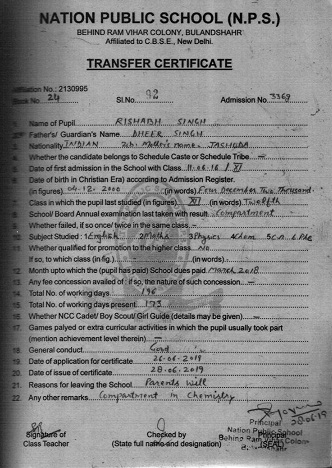 NATION PUBLIC SCHOOL (N.P.S.)
BEHIND RAM VIHAR COLONY, BULANDSHAHR
Affiliated to C.B.S.E., New Delhi.
TRANSFER CERTIFICATE
Affiliation No.: 2130995
Book No. 24 Sl.No. 92 Admission No. 3369
1. Name of Pupil RISHABH SINGH
2. Father's/ Guardian's Name DHEER SINGH
3. Nationality INDIAN Mother's name. JASHODA
4. Whether the candidate belongs to Schedule Caste or Schedule Tribe
5. Date of first admission in the School with Class 11.06.16 / XI
6. Date of birth in Christian Era) according to Admission Register.
(in figures) 04-12-2000 (in words) Four December Two Thousand
7. Class in which the pupil last studied (in figures) XII (in words) Twelfth
8. School/ Board Annual examination last taken with result Compartment
9. Whether failed, if so once/ twice in the same class
10. Subject Studied : 1. English 2 Maths 3 Physics 4 Chem 5 C.S 6 Phe
11. Whether qualified for promotion to the higher class No
If so, to which class (in fig.) (in words)
12. Month upto which the (pupil has paid) School dues paid March 2018
13. Any fee concession availed of : if so, the nature of such concession
14. Total No. of working days 196
15. Total No. of working days present 173
16. Whether NCC Cadet/ Boy Scout/ Girl Guide (details may be given)
17. Games palyed or extra curricular activities in which the pupil usually took part
(mention achievement level therein)
18. General conduct Good
19. Date of application for certificate 26-06-2019
20. Date of issue of certificate 28-06-2019
21. Reasons for leaving the School Parents Will
22. Any other remarks Compartment in Chemistry
28-06-19
Signature of Checked by Principal
Class Teacher (State full name and designation) (SEAL)
Principal
Nation Public School
Behind Ram Vihar Colony